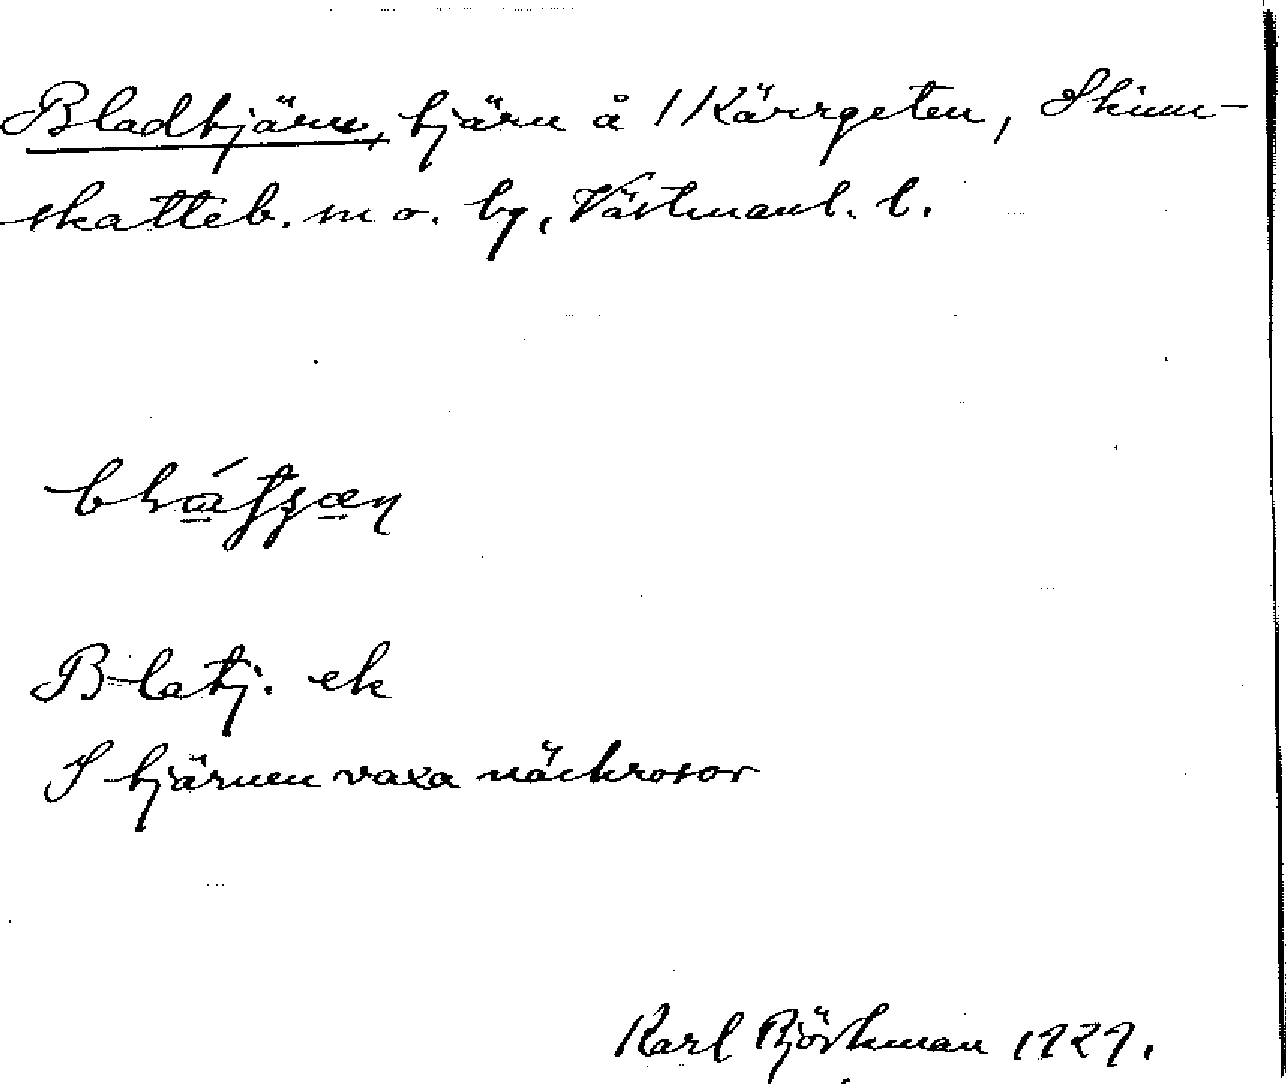 Bladtjärn, tjärn å 1 Kärrgeten, Skinn-
skatteb. sn o. bg, Västmanl. l.
Blatj. ek
I tjärnen växa näckrosor
Karl Björkman 1929.